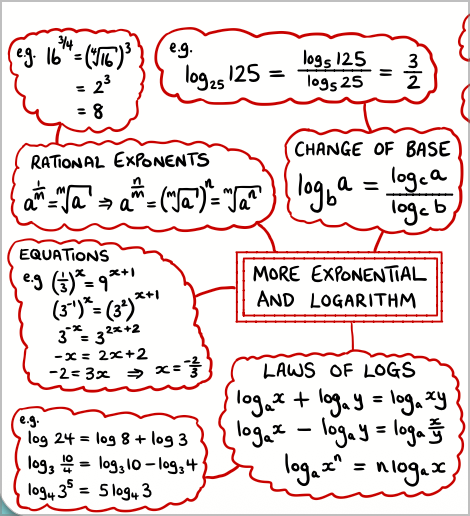 e.g. 16^{3/4} = (⁴√16)³
= 2³
= 8
e.g.
log₂₅ 125 = log₅ 125 / log₅ 25 = 3/2
RATIONAL EXPONENTS
a^{1/m} = ᵐ√a ⇒ a^{n/m} = (ᵐ√a)ⁿ = ᵐ√aⁿ
CHANGE OF BASE
log_b a = log_c a / log_c b
EQUATIONS
e.g (1/3)^x = 9^{x+1}
(3⁻¹)^x = (3²)^{x+1}
3^{-x} = 3^{2x+2}
-x = 2x+2
-2 = 3x ⇒ x = -2/3
MORE EXPONENTIAL
AND LOGARITHM
LAWS OF LOGS
logₐx + logₐy = logₐxy
logₐx − logₐy = logₐ x/y
logₐxⁿ = n logₐx
e.g.
log 24 = log 8 + log 3
log₃ 10/4 = log₃10 − log₃4
log₄3⁵ = 5 log₄3